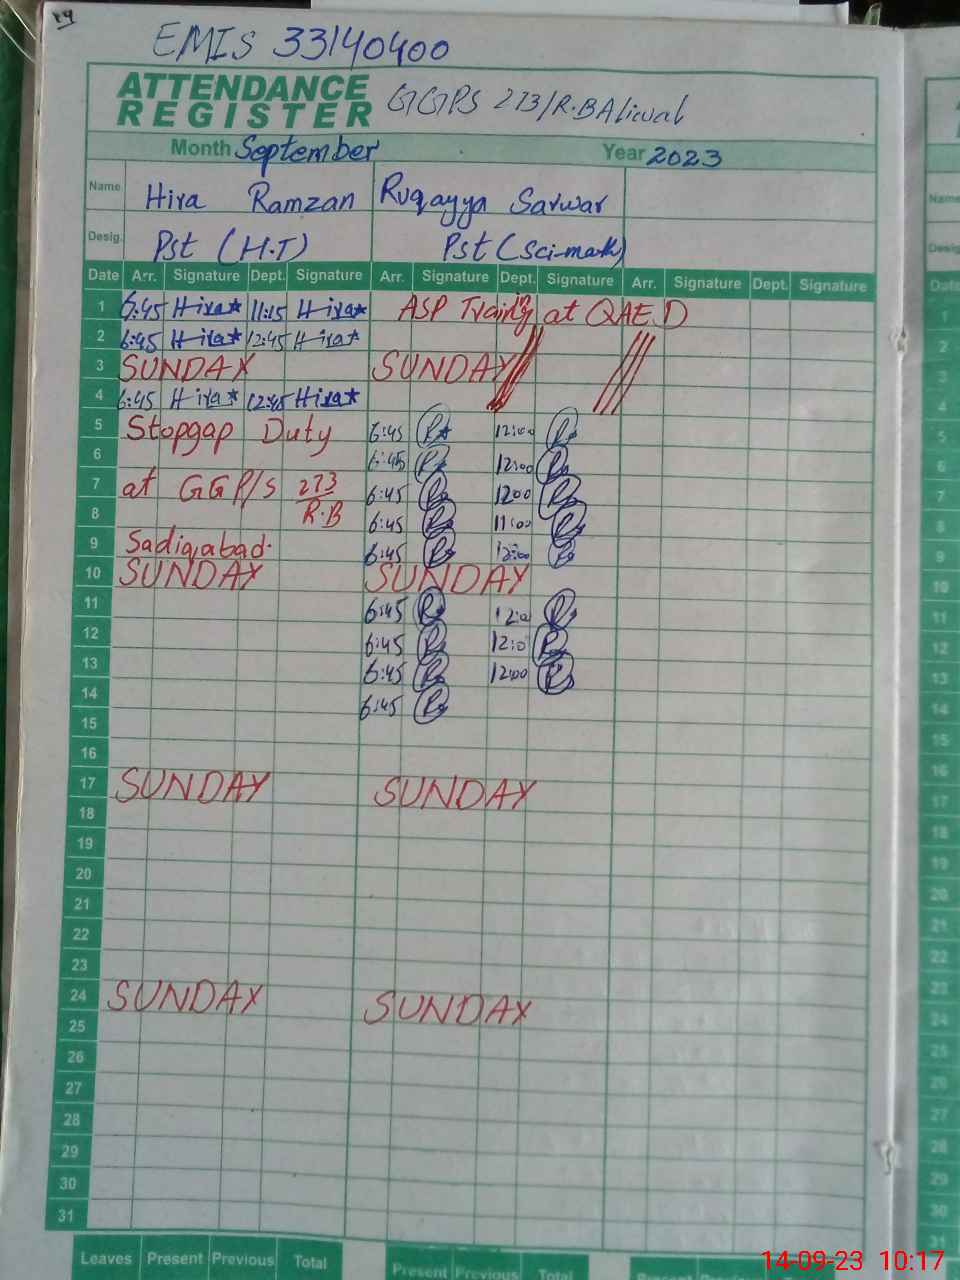 EMIS 33140400
ATTENDANCE
REGISTER GGPS 273/R.B Aliwal
Month September Year 2023
Name Hira Ramzan Ruqayya Sarwar
Desig. Pst (H.T) Pst (Sci-math)
Date Arr. Signature Dept. Signature Arr. Signature Dept. Signature Arr. Signature Dept. Signature
1 6:45 Hira 11:15 Hira ASP Training at QAED
2 6:45 Hira 12:45 Hira
3 SUNDAY SUNDAY
4 6:45 Hira 12:45 Hira
5 Stopgap Duty 6:45 R 12:00 R
6 6:45 R 12:00 R
7 at GGP/S 273 6:45 R 1200 R
8 R.B 6:45 R 11:00 R
9 Sadiqabad. 6:45 R 12:00 R
10 SUNDAY SUNDAY
11 6:45 R 12:0 R
12 6:45 R 12:0 R
13 6:45 R 12:00 R
14 6:45 R
15
16
17 SUNDAY SUNDAY
18
19
20
21
22
23
24 SUNDAY SUNDAY
25
26
27
28
29
30
31
Leaves Present Previous Total Present Previous Total Present Previous Total
14-09-23 10:17